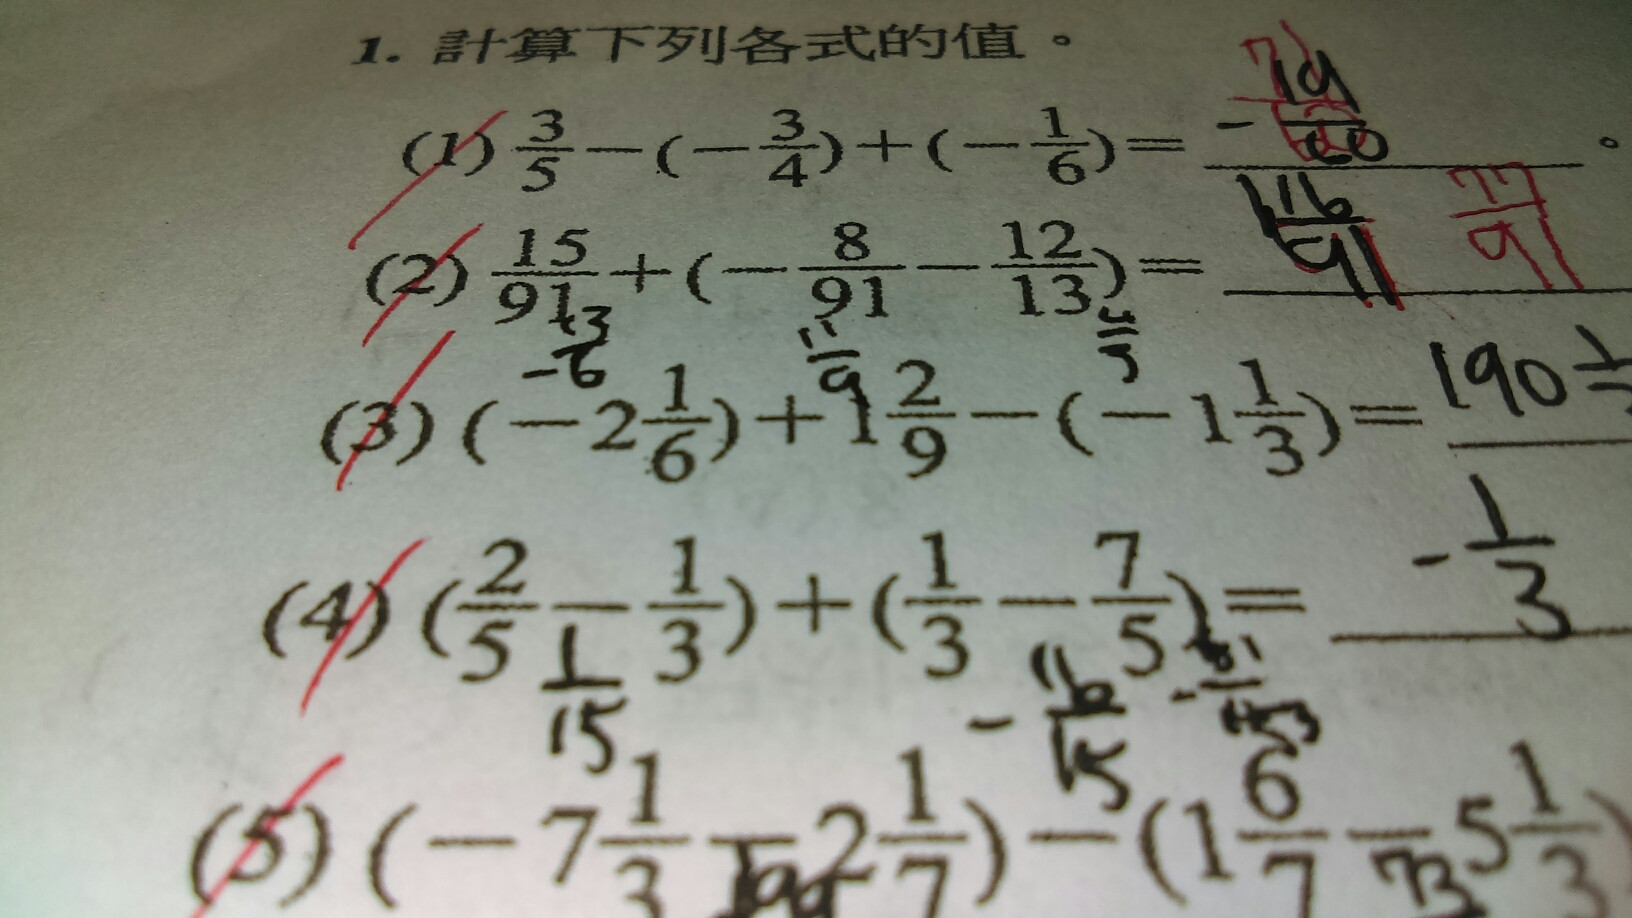 1. 計算下列各式的值。
(1) 3/5 - (- 3/4) + (- 1/6) = - 19/60 。
(2) 15/91 + (- 8/91 - 12/13) = 116/91 77/91
- 13/6 11/9 4/3
(3) (- 2 1/6) + 1 2/9 - (- 1 1/3) = 190
(4) (2/5 - 1/3) + (1/3 - 7/5) = - 1/3
1/15 - 16/15
(5) (- 7 1/3 - 2 1/7) - (1 6/7 - 5 1/3)